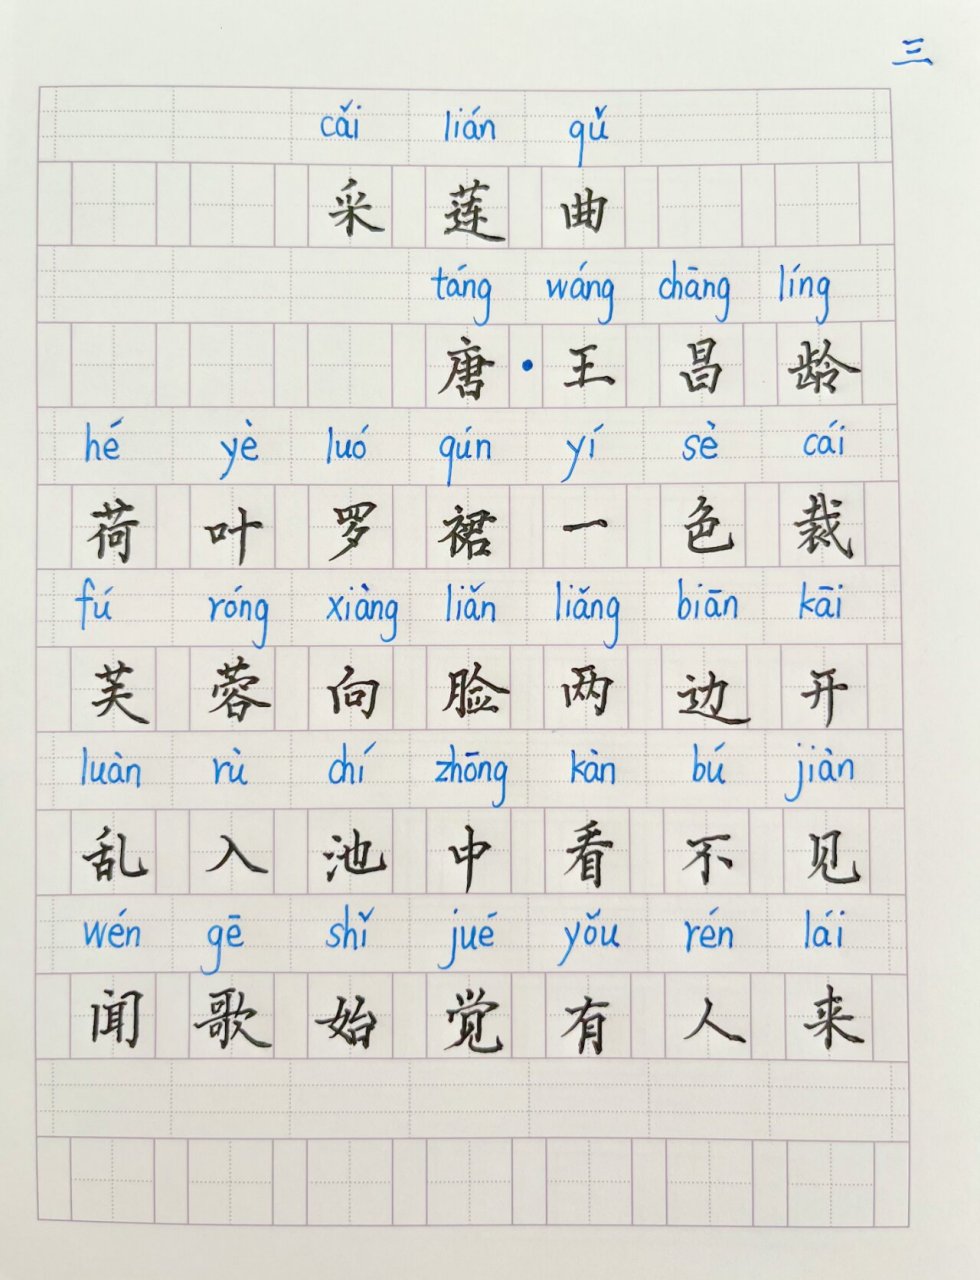 三
cǎi lián qǔ
采莲曲
táng wáng chāng líng
唐·王昌龄
hé yè luó qún yí sè cái
荷叶罗裙一色裁
fú róng xiàng liǎn liǎng biān kāi
芙蓉向脸两边开
luàn rù chí zhōng kàn bú jiàn
乱入池中看不见
wén gē shǐ jué yǒu rén lái
闻歌始觉有人来